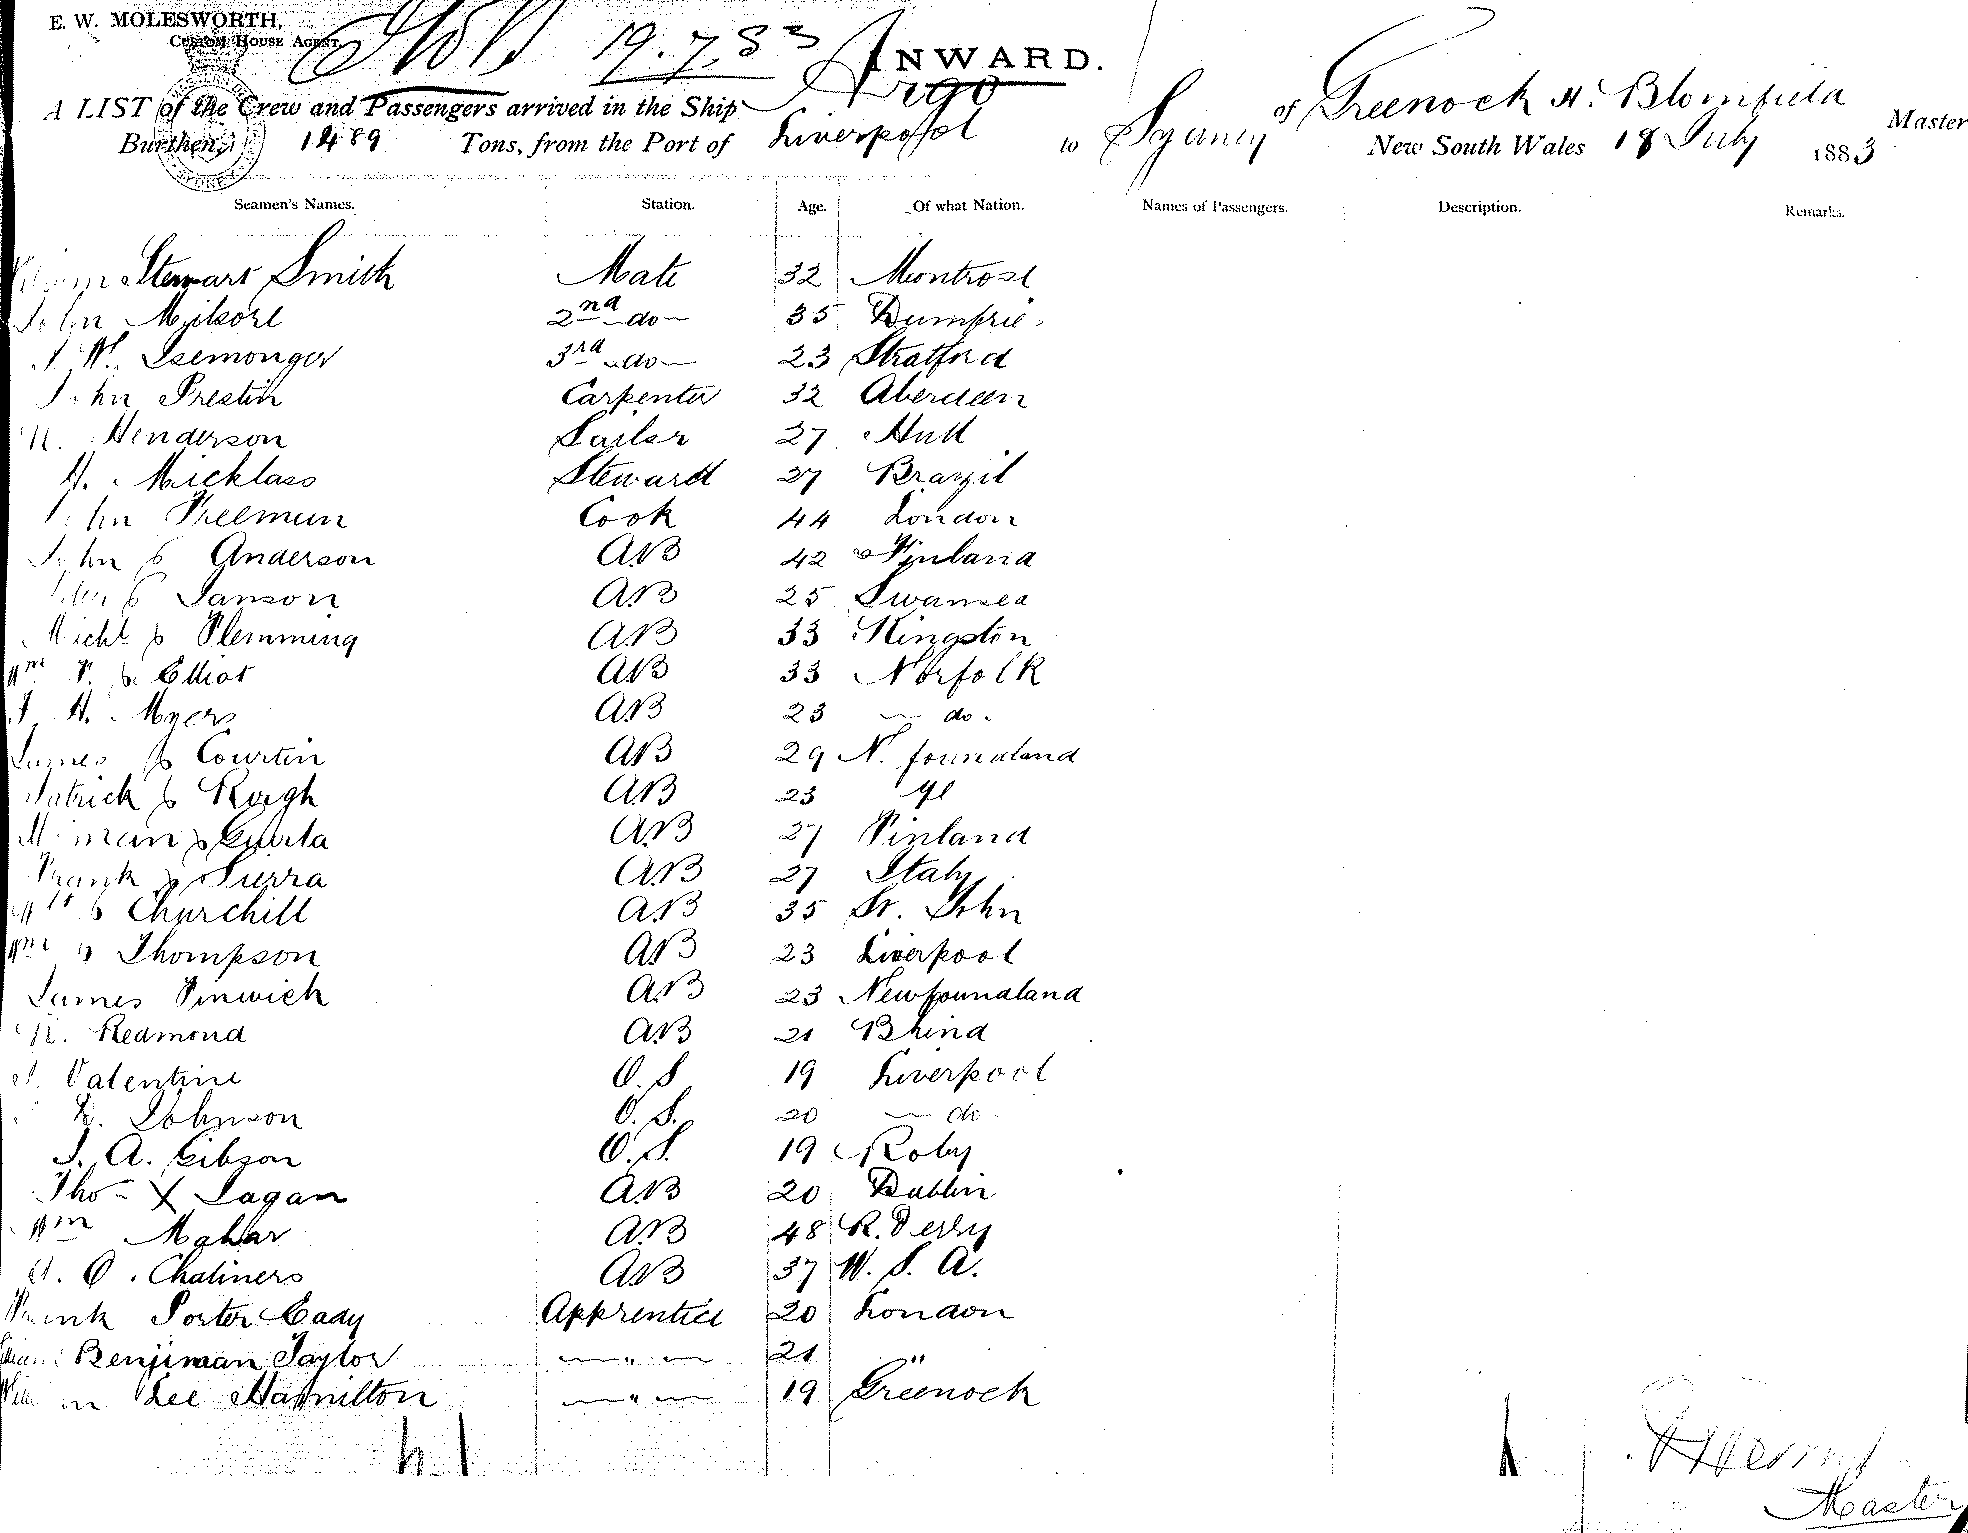 E. W. MOLESWORTH,
CUSTOM HOUSE AGENT.
19.7.83
INWARD.
A LIST of the Crew and Passengers arrived in the Ship Argo of Greenock H. Blomfield Master
Burthen, 1489 Tons, from the Port of Liverpool to Sydney New South Wales 18 July 1883
Seamen's Names. Station. Age. Of what Nation. Names of Passengers. Description. Remarks.
Stewart Smith Mate 32 Montrose
John 2nd do 35 Dumfrie
J W. Isemonger 3rd do 23 Stratford
John Preston Carpenter 32 Aberdeen
Henderson Sailor 27 Hull
H. Micklass Steward 27 Brazil
John Freeman Cook 44 London
John Anderson AB 42 Finland
Janson AB 25 Swansea
Michl Flemming AB 33 Kingston
Wm F. Elliot AB 33 Norfolk
J H. Myers AB 23 do.
James Courtin AB 29 N. foundland
Patrick Keogh AB 23
AB 27 Finland
Frank Sierra AB 27 Italy
Churchill AB 35 St. John
Wm Thompson AB 23 Liverpool
James Pinwich AB 23 Newfoundland
Redmond AB 21
Valentine O.S 19 Liverpool
Johnson O.S. 20 do
J. A. Gibson O.S. 19 Roby
Thos X Lagan AB 20 Dublin
Wm Mahar AB 48
O. Chalmers AB 37 U. S. A.
Frank Porter Eady Apprentice 20 London
Benjiman Taylor " 21 "
Lee Hamilton " 19 Greenock
Master